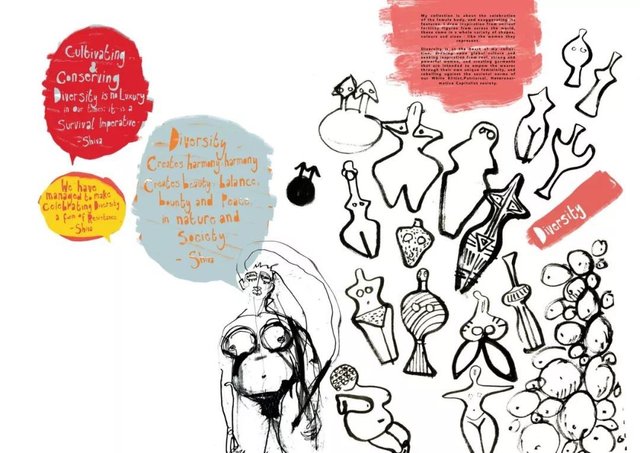 Cultivating
&
Conserving
Diversity is no Luxury
in our times it is a
Survival Imperative
- Shiva
We have
managed to make
Celebrating Diversity
a form of Resistance
- Shiva
Diversity
Creates harmony harmony
Creates beauty, balance,
bounty and Peace
in nature and
Society
- Shiva
My collection is about the celebration
of the female body, and exaggerating its
features. I draw inspiration from ancient
fertility figures from across the world,
there come in a whole variety of shapes,
colours and sizes - like the women they
represent.
Diversity is at the heart of my collec-
tion,
seeking inspiration from real, strong and
powerful women, and creating garments
that are intended to empower the wearer
through their own unique femininity, and
rebelling against the societal norms of
our White Elitist,Patriarcal,
Capitalist society.
Diversity